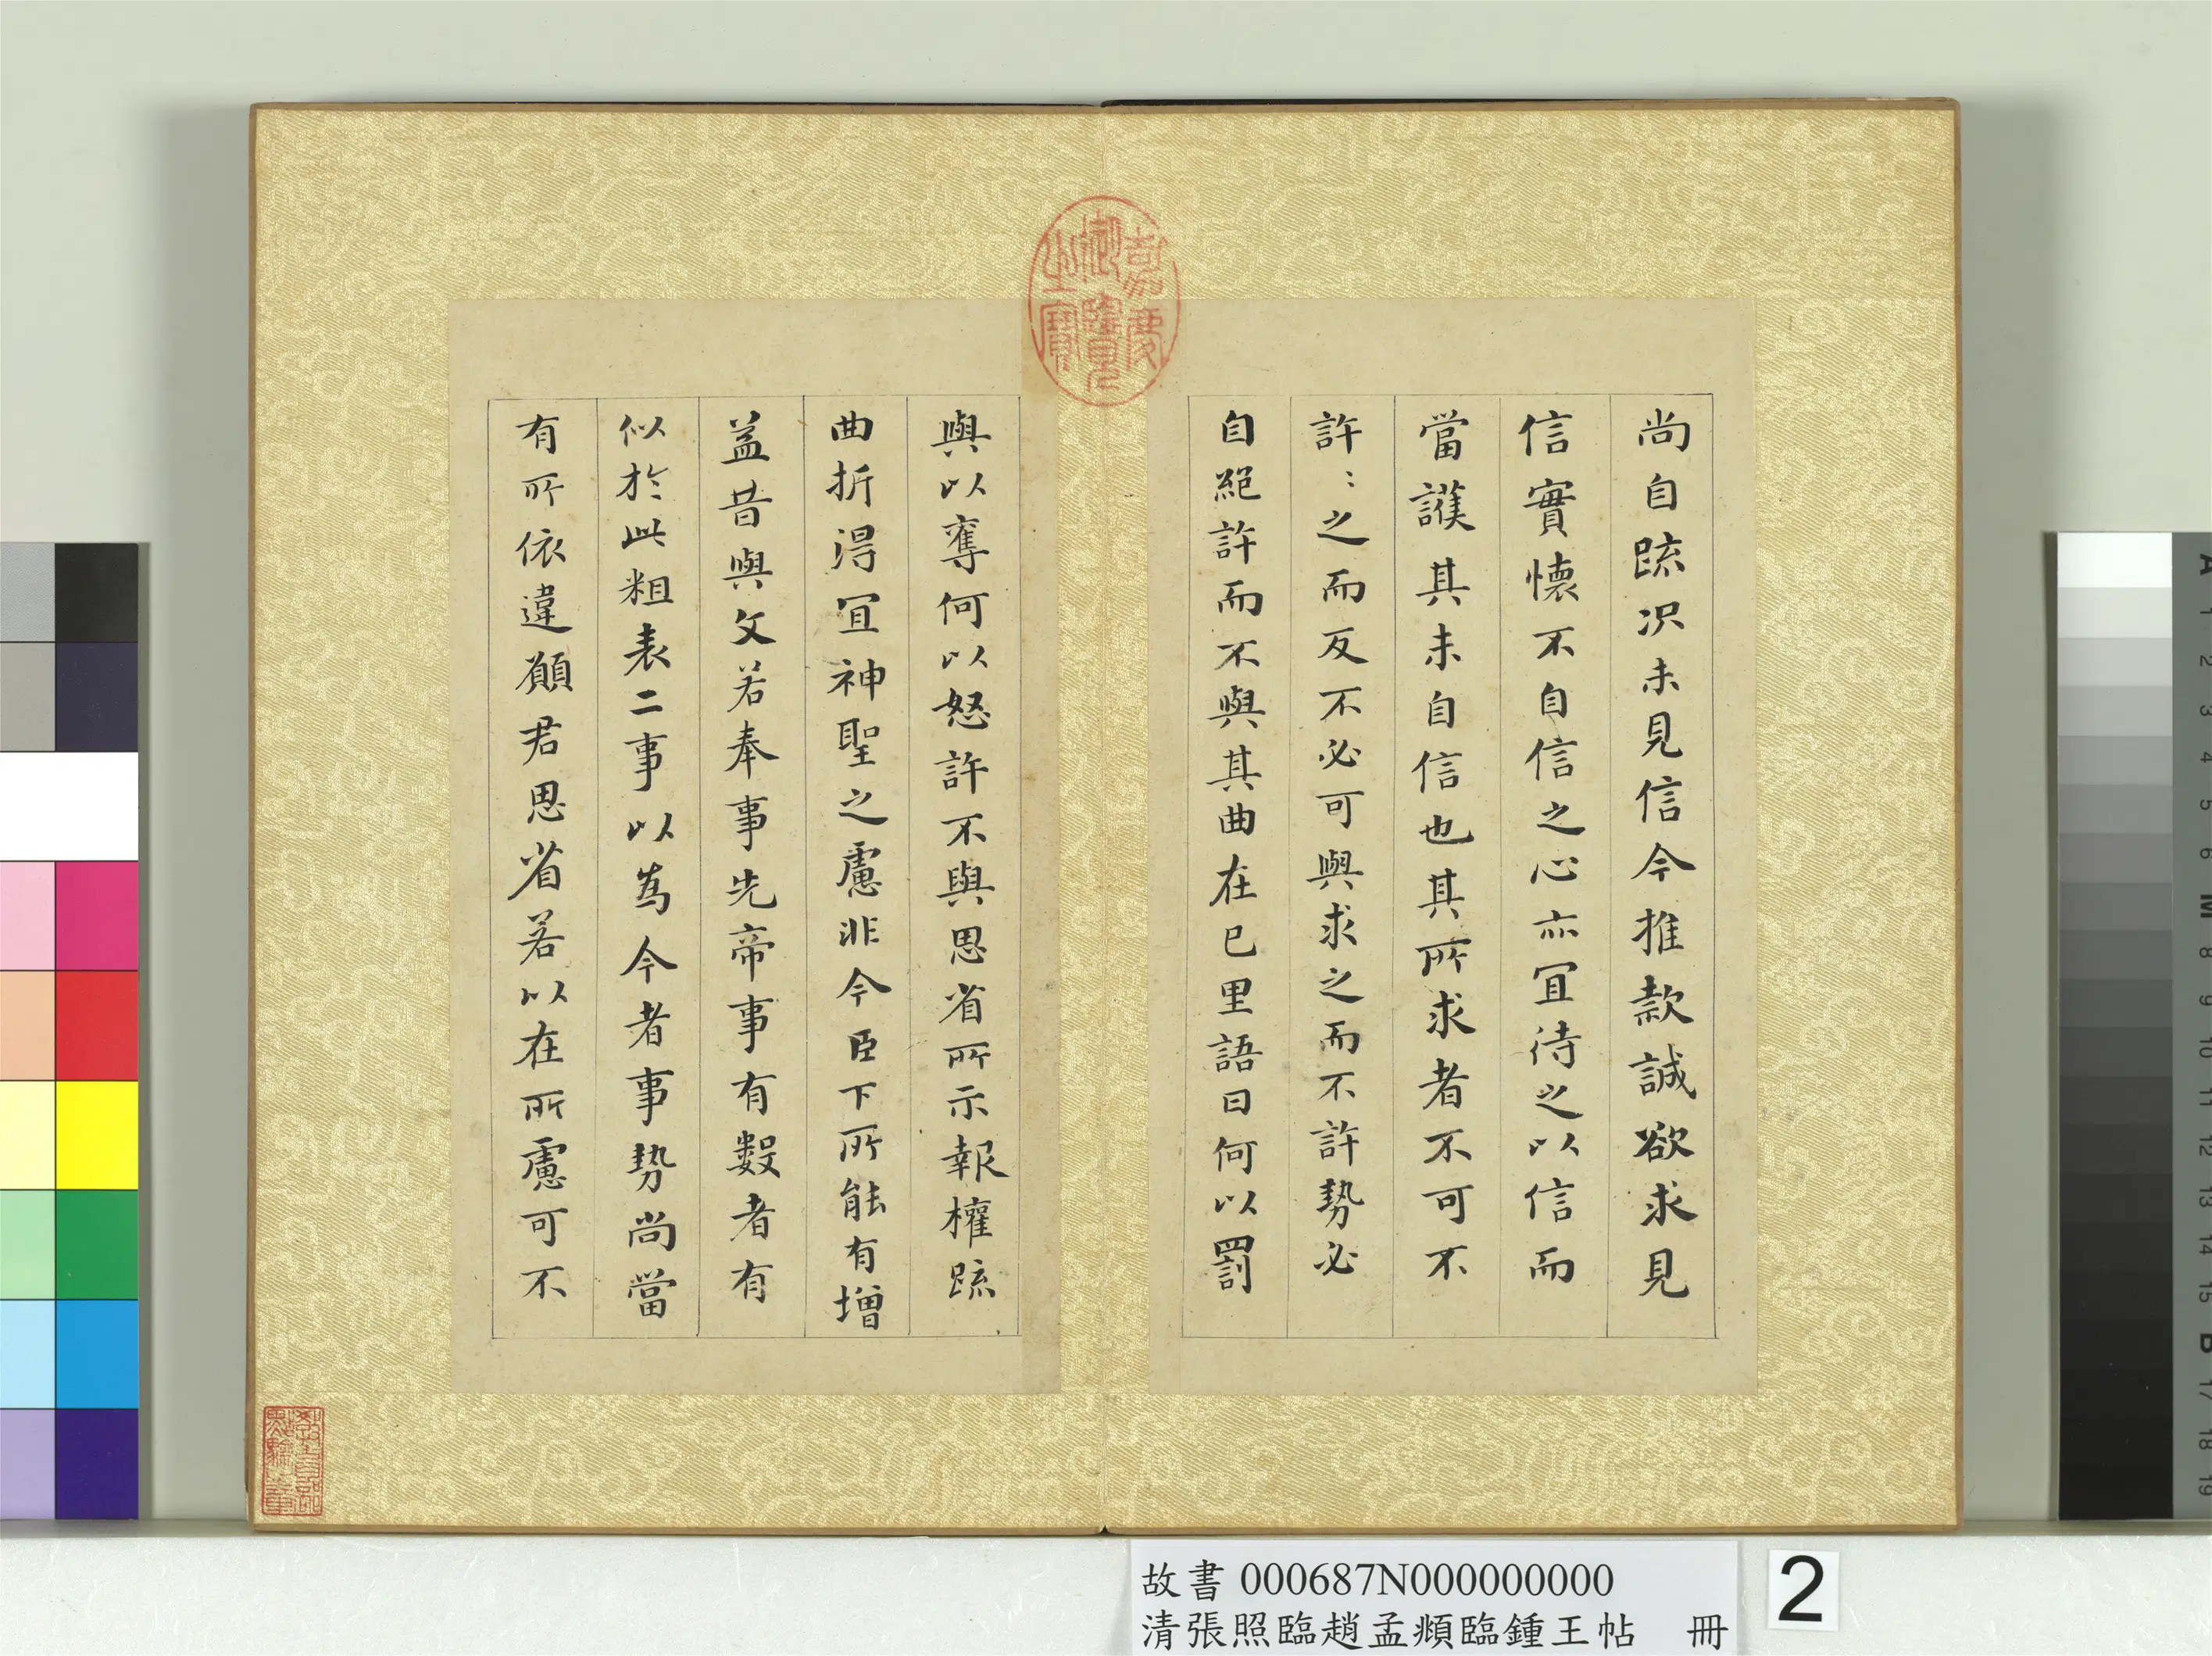 尚自疏況未見信今推款誠欲求見
信實懷不自信之心亦宜待之以信而
當護其未自信也其所求者不可不
許:之而反不必可與求之而不許勢必
自絕許而不與其曲在己里語曰何以罰
與以奪何以怒許不與思省所示報權疏
曲折得宜神聖之慮非今臣下所能有增
益昔與文若奉事先帝事有數者有
似於此粗表二事以為今者事勢尚當
有所依違願君思省若以在所慮可不
嘉慶御覽之寶
故書 000687N000000000
清張照臨趙孟頫臨鍾王帖 冊
2
A 1 2 3 4 5 6 M 8 9 10 11 12 13 14 15 B 17 18 19